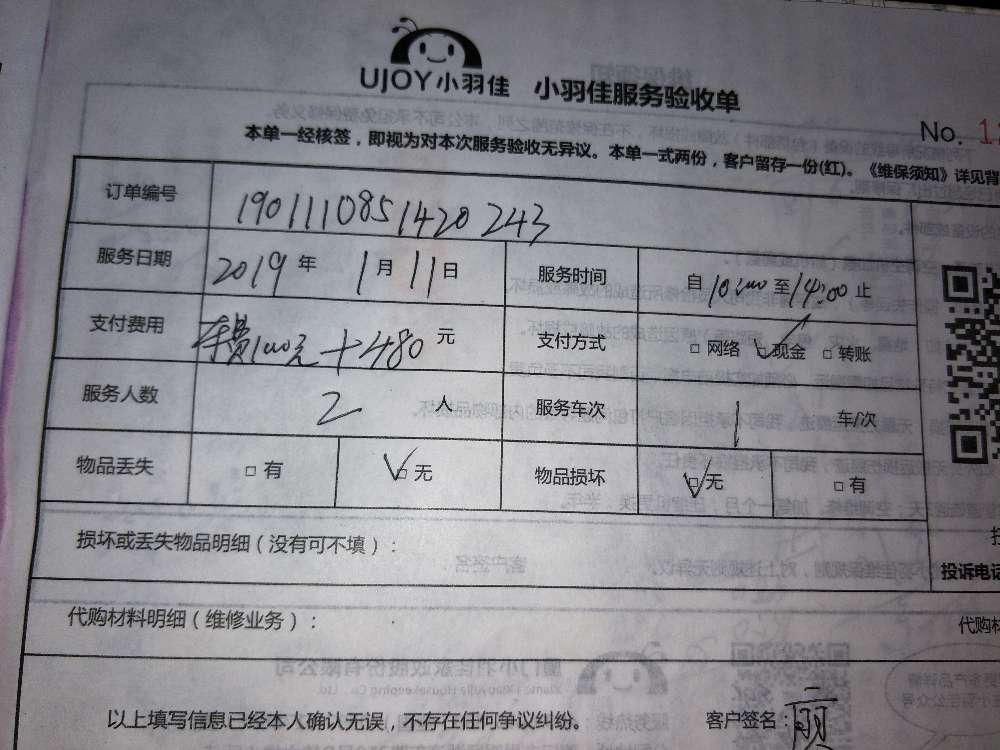 UJOY小羽佳 小羽佳服务验收单
No. 1
本单一经核签，即视为对本次服务验收无异议。本单一式两份，客户留存一份(红)。《维保须知》详见背
订单编号 190111085142024​3
服务日期 2019 年 1 月 11 日 服务时间 自 10:00 至 14:00 止
支付费用 车费100元+480 元 支付方式 □ 网络 □ 现金 □ 转账
服务人数 2 人 服务车次 1 车/次
物品丢失 □ 有 □ 无 物品损坏 □ 无 □ 有
损坏或丢失物品明细（没有可不填）：
投诉电话
代购材料明细（维修业务）： 代购材
以上填写信息已经本人确认无误，不存在任何争议纠纷。 客户签名：